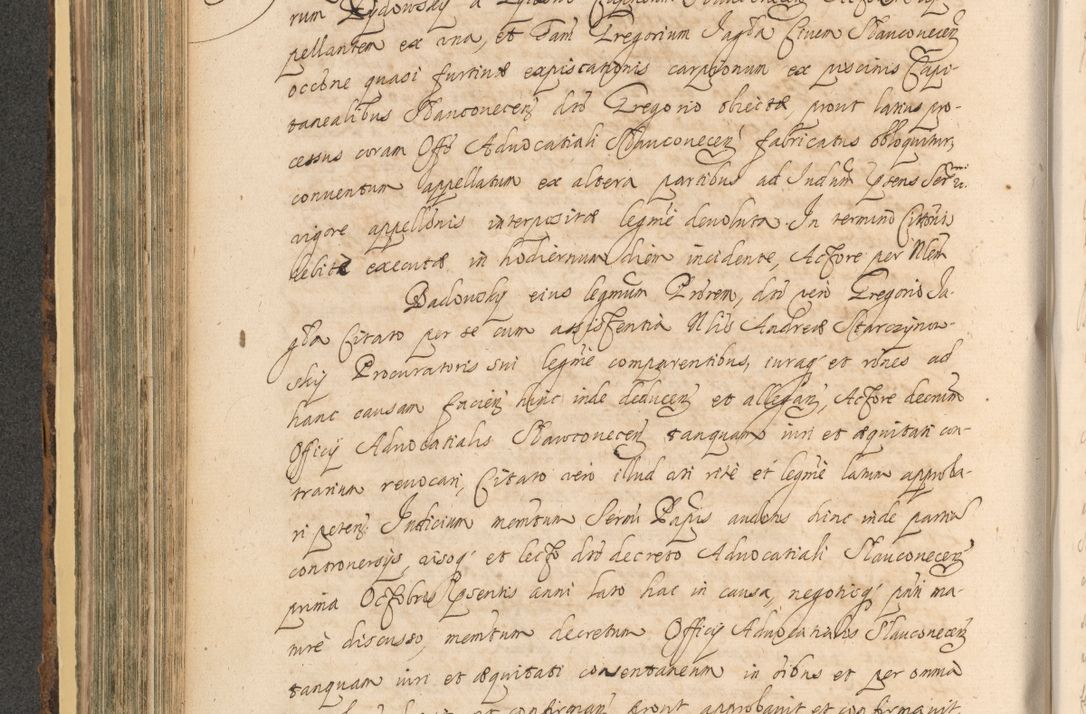 pellantem ex una, et Dam Gregorium Jagła Civem Slauconecen̄
occōne quasi furtivæ expiscationis carpionum ex piscinis Capi-
tanealibus Slauconecen̄ dcō Gregorio obiectæ, prout latius pro-
cessus coram Offō Advocatiali Slauconecen̄ fabricatus obloquitur,
conventum appellatum ex altera partibus ad Judm̄ pn̄s Sermi
vigore appellōnis interpositæ legmē devoluta. In termino Citōnis
debite executæ in hodiernum diem incidente, Actore per Nlem
Badowsky eius legmūm Prōrem, dcō vero Gregorio Ja-
gła Citato per se cum assistentia Nlis Andreæ Starczynow-
skij Procuratoris sui legmē comparentibus, iuraq́ et rōnes ad
hanc causam facien̄ hinc inde deducen̄ et allegan̄, Actore decrtūm
Officij Advocatialis Slawconecen̄ tanquam iuri et æquitati con-
trarium revocari, Citato vero illud uti ritè et legmē latum approba-
ri peten̄. Iudicium memtum Sermi audens hinc inde partium
controversijs, visoq́ et lecto dcō decreto Advocatiali Slauconecen̄
prima Octobris pn̄sentis anni lato hac in causa, negotioq́ pn̄ti ma-
turè discusso, memtum decretum Officij Advocatialis Slauconecen̄
tanquam iuri et æquitati consentaneum in oībus et per omnia
et confirman̄ prout approbavit et confirmavit